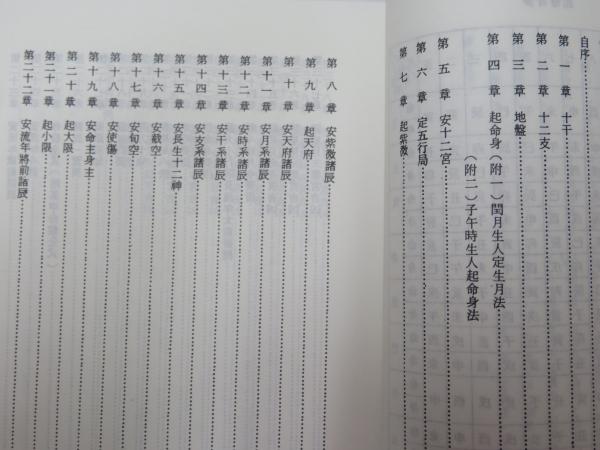 自序
第一章 十干
第二章 十二支
第三章 地盤
第四章 起命身(附一)閏月生人定生月法
(附二)子午時生人起命身法
第五章 安十二宮
第六章 定五行局
第七章 起紫微
第八章 安紫微諸辰
第九章 起天府
第十章 安天府諸辰
第十一章 安月系諸辰
第十二章 安時系諸辰
第十三章 安干系諸辰
第十四章 安支系諸辰
第十五章 安長生十二神
第十六章 安截空
第十七章 安旬空
第十八章 安使傷
第十九章 安命主身主
第二十章 起大限
第二十一章 起小限
第二十二章 安流年將前諸辰